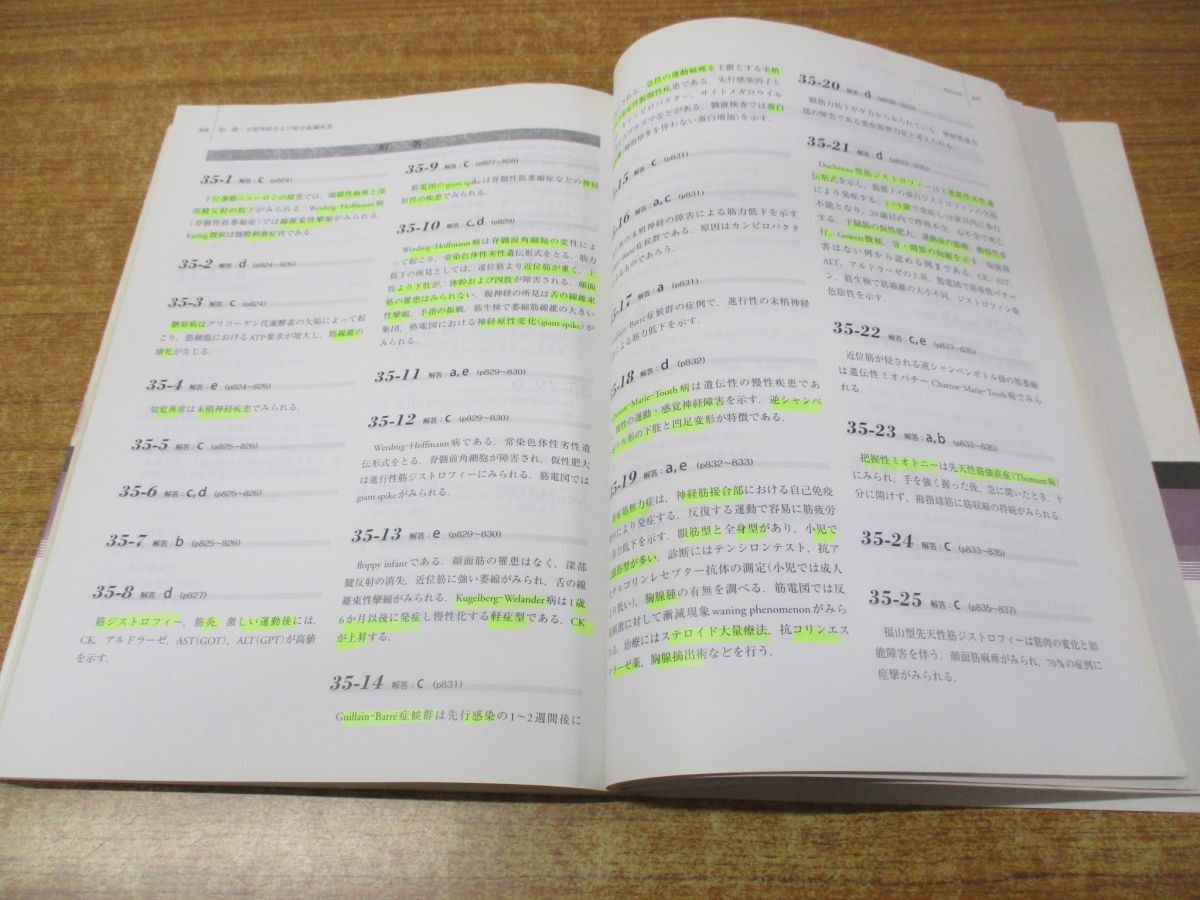 解答
35-1 解答:c (p824)
下位運動ニューロンの障害では，弛緩性麻痺と深
部腱反射の低下がみられる．Werdnig-Hoffmann病
(脊髄性筋萎縮症)では線維束性攣縮がみられる．
Kernig徴候は髄膜刺激症状である．
35-2 解答:d (p824~826)
35-3 解答:c (p824)
糖原病はグリコーゲン代謝酵素の欠陥によって起
こり，筋細胞におけるATP要求が増大し，筋線維の
壊死が生じる．
35-4 解答:e (p824~826)
知覚異常は末梢神経疾患でみられる．
35-5 解答:c (p825~826)
35-6 解答:c,d (p825~826)
35-7 解答:b (p825~826)
35-8 解答:d (p827)
筋ジストロフィー，筋炎，激しい運動後には，
CK，アルドラーゼ，AST(GOT)，ALT(GPT)が高値
を示す．
35-9 解答:c (p827~828)
筋電図のgiant spikeは脊髄性筋萎縮症などの神経
原性の疾患でみられる．
35-10 解答:c,d (p829)
Werdnig-Hoffmann病は脊髄前角細胞の変性によ
って起こり，常染色体性劣性遺伝形式をとる．筋力
低下の所見としては，遠位筋より近位筋が重く，上
肢より下肢が，体幹および四肢が障害される．顔面
筋の罹患はみられない．脱神経の所見は舌の線維束
性攣縮，手指の振戦，筋生検で萎縮筋線維の大きい
集団，筋電図における神経原性変化(giant spike)が
みられる．
35-11 解答:a,e (p829~830)
35-12 解答:c (p829~830)
Werdnig-Hoffmann病である．常染色体性劣性遺
伝形式をとる．脊髄前角細胞が障害され，仮性肥大
は進行性筋ジストロフィーにみられる．筋電図では
giant spikeがみられる．
35-13 解答:e (p829~830)
floppy infantである．顔面筋の罹患はなく，深部
腱反射の消失，近位筋に強い萎縮がみられ，舌の線
維束性攣縮がみられる．Kugelberg-Welander病は1歳
6か月以後に発症し慢性化する軽症型である．CK
が上昇する．
35-14 解答:c (p831)
Guillain-Barré症候群は先行感染の1~2週間後に
される，急性の運動麻痺を主徴とする末梢
性疾患である．先行感染因子と
キャンピロバクター，サイトメガロウイル
コプラズマなどがある．髄液検査では蛋白
細胞増多を伴わない蛋白増加)を示す．
15 解答:c (p831)
16 解答:a,c (p831)
の末梢神経の障害による筋力低下を示す
Barré症候群である．原因はカンピロバクタ
るものであろう．
17 解答:a (p831)
Barré症候群の症例で，進行性の末梢神経
による筋力低下を示す．
18 解答:d (p832)
Charcot-Marie-Tooth病は遺伝性の慢性疾患であ
慢性の運動・感覚神経障害を示す．逆シャンペ
トル形の下肢と凹足変形が特徴である．
35-19 解答:a,e (p832~833)
筋無力症は，神経筋接合部における自己免疫
により発症する．反復する運動で容易に筋疲労
筋力低下を示す．眼筋型と全身型があり，小児で
眼筋型が多い．診断にはテンシロンテスト，抗ア
チルコリンレセプター抗体の測定(小児では成人
り低い)，胸腺腫の有無を調べる．筋電図では反
刺激に対して漸減現象waning phenomenonがみら
る．治療にはステロイド大量療法，抗コリンエス
ラーゼ薬，胸腺摘出術などを行う．
35-20 解答:d
眼筋力低下が夕方からみられている．神経筋接合
部の障害である重症筋無力症と考えられる．
35-21 解答:d (p833~835)
Duchenne型筋ジストロフィーはX連鎖性劣性遺
伝形式を示し，筋膜上の蛋白ジストロフィンの欠損
により発症する．2~5歳で発症し10歳以内に歩行
不能となり，20歳以内で呼吸不全，心不全で死亡
する．下腿筋の仮性肥大，運動後の筋痛，動揺性歩
行，Gowers徴候，骨・関節の拘縮を示す．知能障
害はない例から認める例まである．CK，AST，
ALT，アルドラーゼの上昇，筋電図で筋原性パター
ン，筋生検で筋線維の大小不同，ジストロフィン染
色陰性を示す．
35-22 解答:c,e (p833~835)
近位筋が侵される逆シャンペンボトル様の筋萎縮
は遺伝性ミオパチーCharcot-Marie-Tooth病でみら
れる．
35-23 解答:a,b (p833~835)
把握性ミオトニーは先天性筋強直症(Thomsen病)
にみられ，手を強く握った後，急に開いたとき，十
分に開けず，拇指球筋に筋収縮の持続がみられる．
35-24 解答:c (p833~835)
35-25 解答:c (p835~837)
福山型先天性筋ジストロフィーは筋肉の変化と知
能障害を伴う．顔面筋麻痺がみられ，70%の症例に
痙攣がみられる．